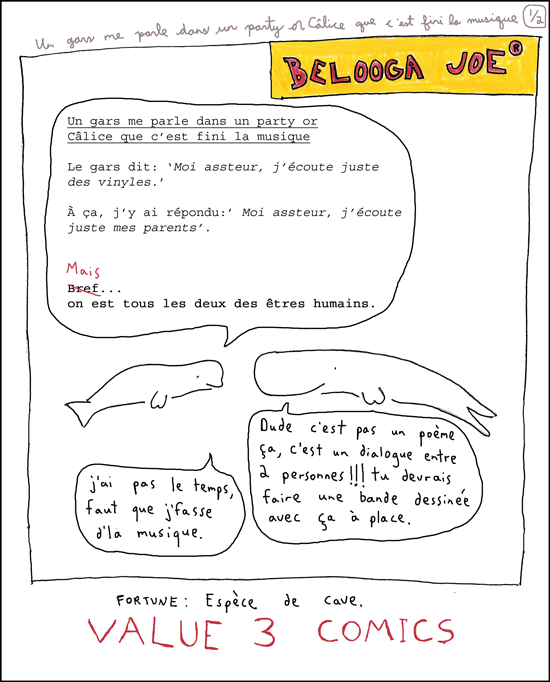 Un gars me parle dans un party or Câlice que c'est fini la musique 1/2
BELOOGA JOE®
Un gars me parle dans un party or
Câlice que c’est fini la musique
Le gars dit: ‘Moi assteur, j’écoute juste
des vinyles.’
À ça, j’y ai répondu:’ Moi assteur, j’écoute
juste mes parents’.
Mais
Bref...
on est tous les deux des êtres humains.
Dude c'est pas un poème
ça, c'est un dialogue entre
2 personnes!!! tu devrais
faire une bande dessinée
avec ça à place.
j'ai pas le temps,
faut que j'fasse
d'la musique.
FORTUNE: Espèce de cave.
VALUE 3 COMICS